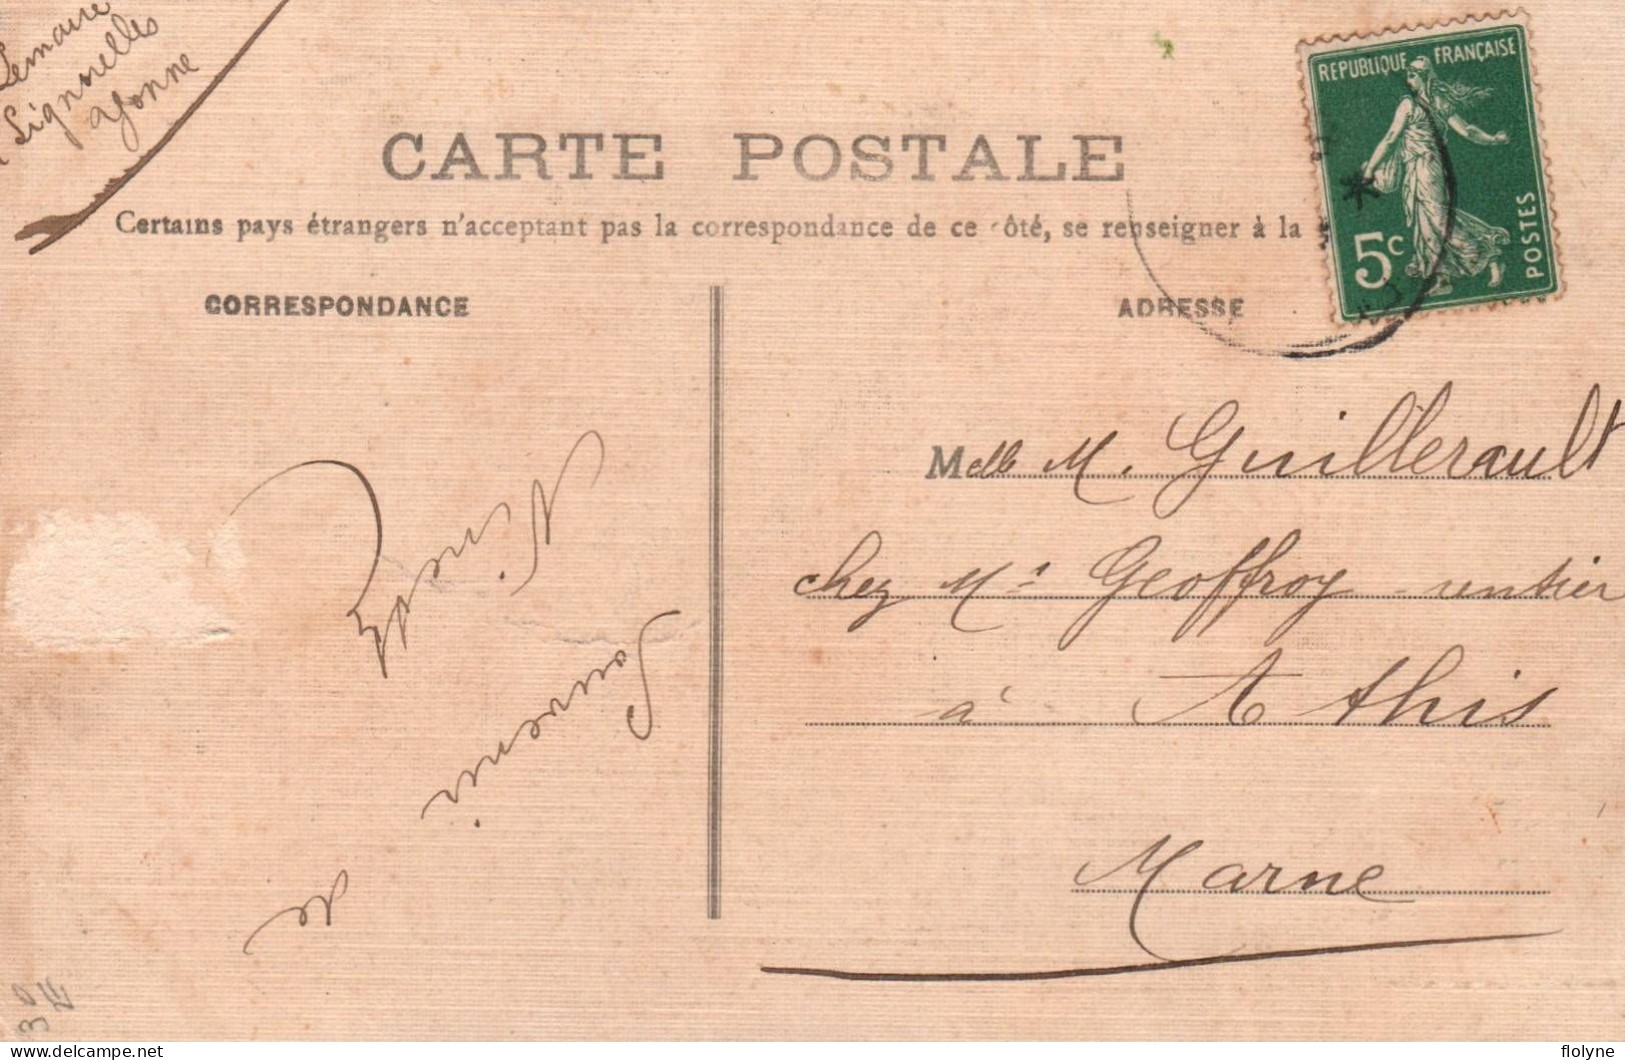 Lemaire
Lignorelles
Yonne
CARTE POSTALE
Certains pays étrangers n'acceptant pas la correspondance de ce côté, se renseigner à la
CORRESPONDANCE
ADRESSE
REPUBLIQUE FRANÇAISE
5c
POSTES
Melle M. Guillerault
chez Mr Geoffroy rentier
à Athis
Marne
Souvenir
de
flolyne